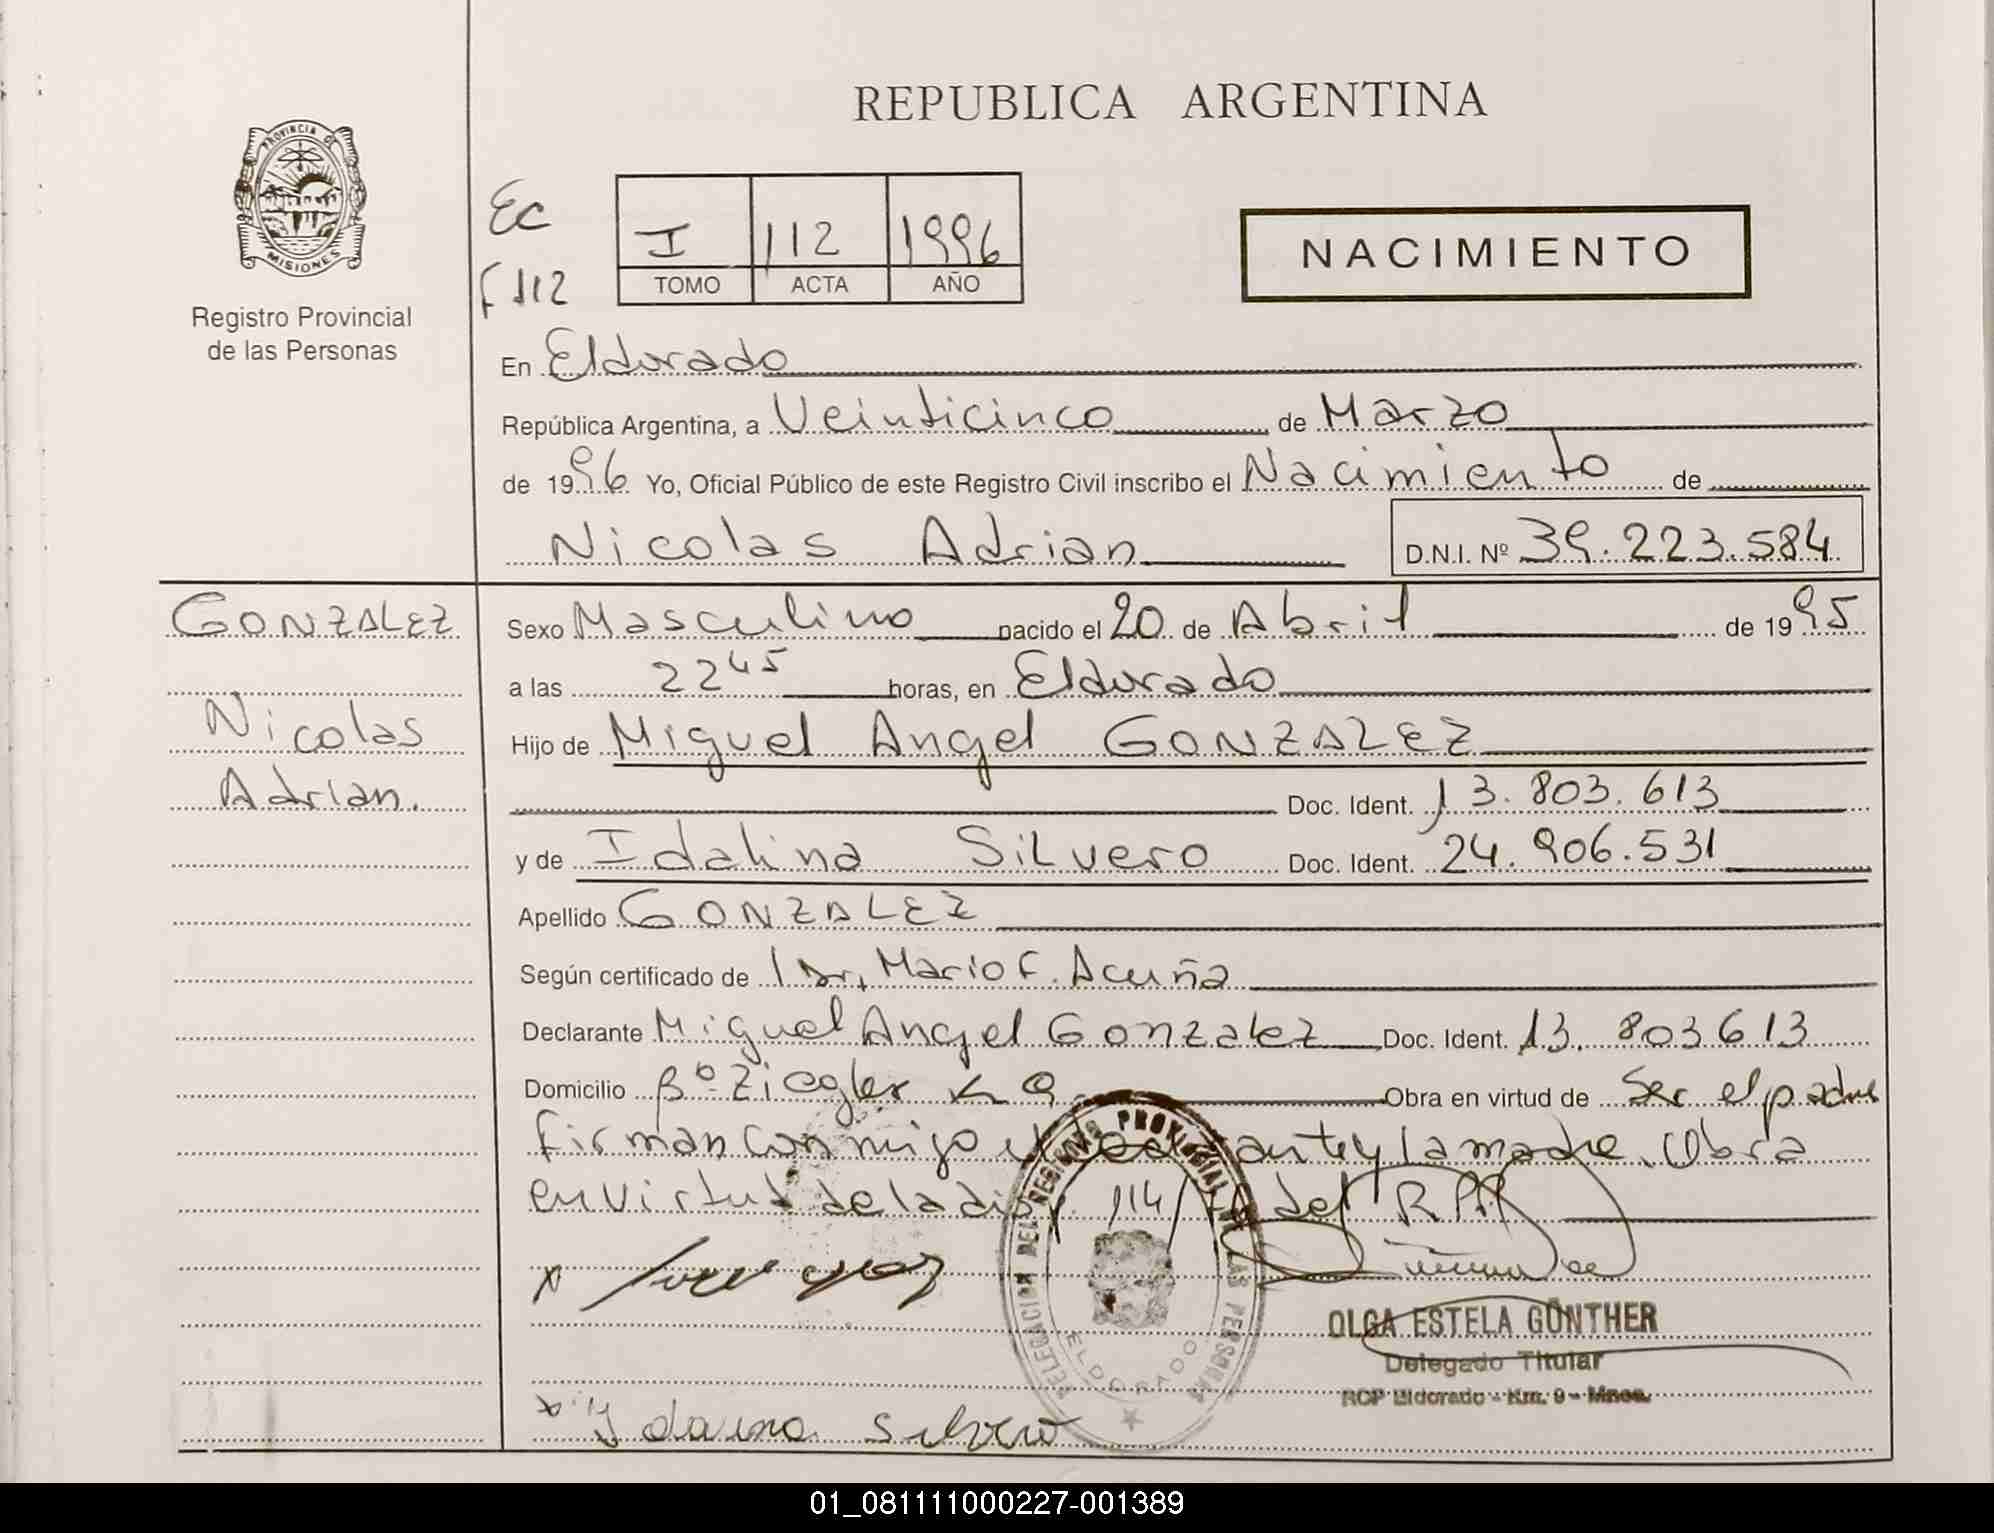 REPUBLICA ARGENTINA
PROVINCIA DE
MISIONES
Registro Provincial
de las Personas
Ec
F 112
I 112 1996
TOMO ACTA AÑO
NACIMIENTO
En Eldorado
República Argentina, a Veinticinco de Marzo
de 1996 Yo, Oficial Público de este Registro Civil inscribo el Nacimiento de
Nicolas Adrian D.N.I. Nº 39.223.584
GONZALEZ
Nicolas
Adrian.
Sexo Masculino nacido el 20 de Abril de 1995
a las 22 45 horas, en Eldorado
Hijo de Miguel Angel GONZALEZ
Doc. Ident. 13.803.613
y de Idalina Silvero Doc. Ident. 24.906.531
Apellido GONZALEZ
Según certificado de Dr. Mario F. Acuña
Declarante Miguel Angel Gonzalez Doc. Ident. 13.803613
Domicilio Bº Ziegler K 9 Obra en virtud de Ser el padre
firman conmigo el y la madre. Obra
en virtud de la 114/ del
DELEGACION DEL REGISTRO PROVINCIAL DE LAS PERSONAS
ELDORADO
OLGA ESTELA GÜNTHER
Delegado Titular
RCP Eldorado - Km. 9 - Mnes.
Idalina Silvero
01_081111000227-001389